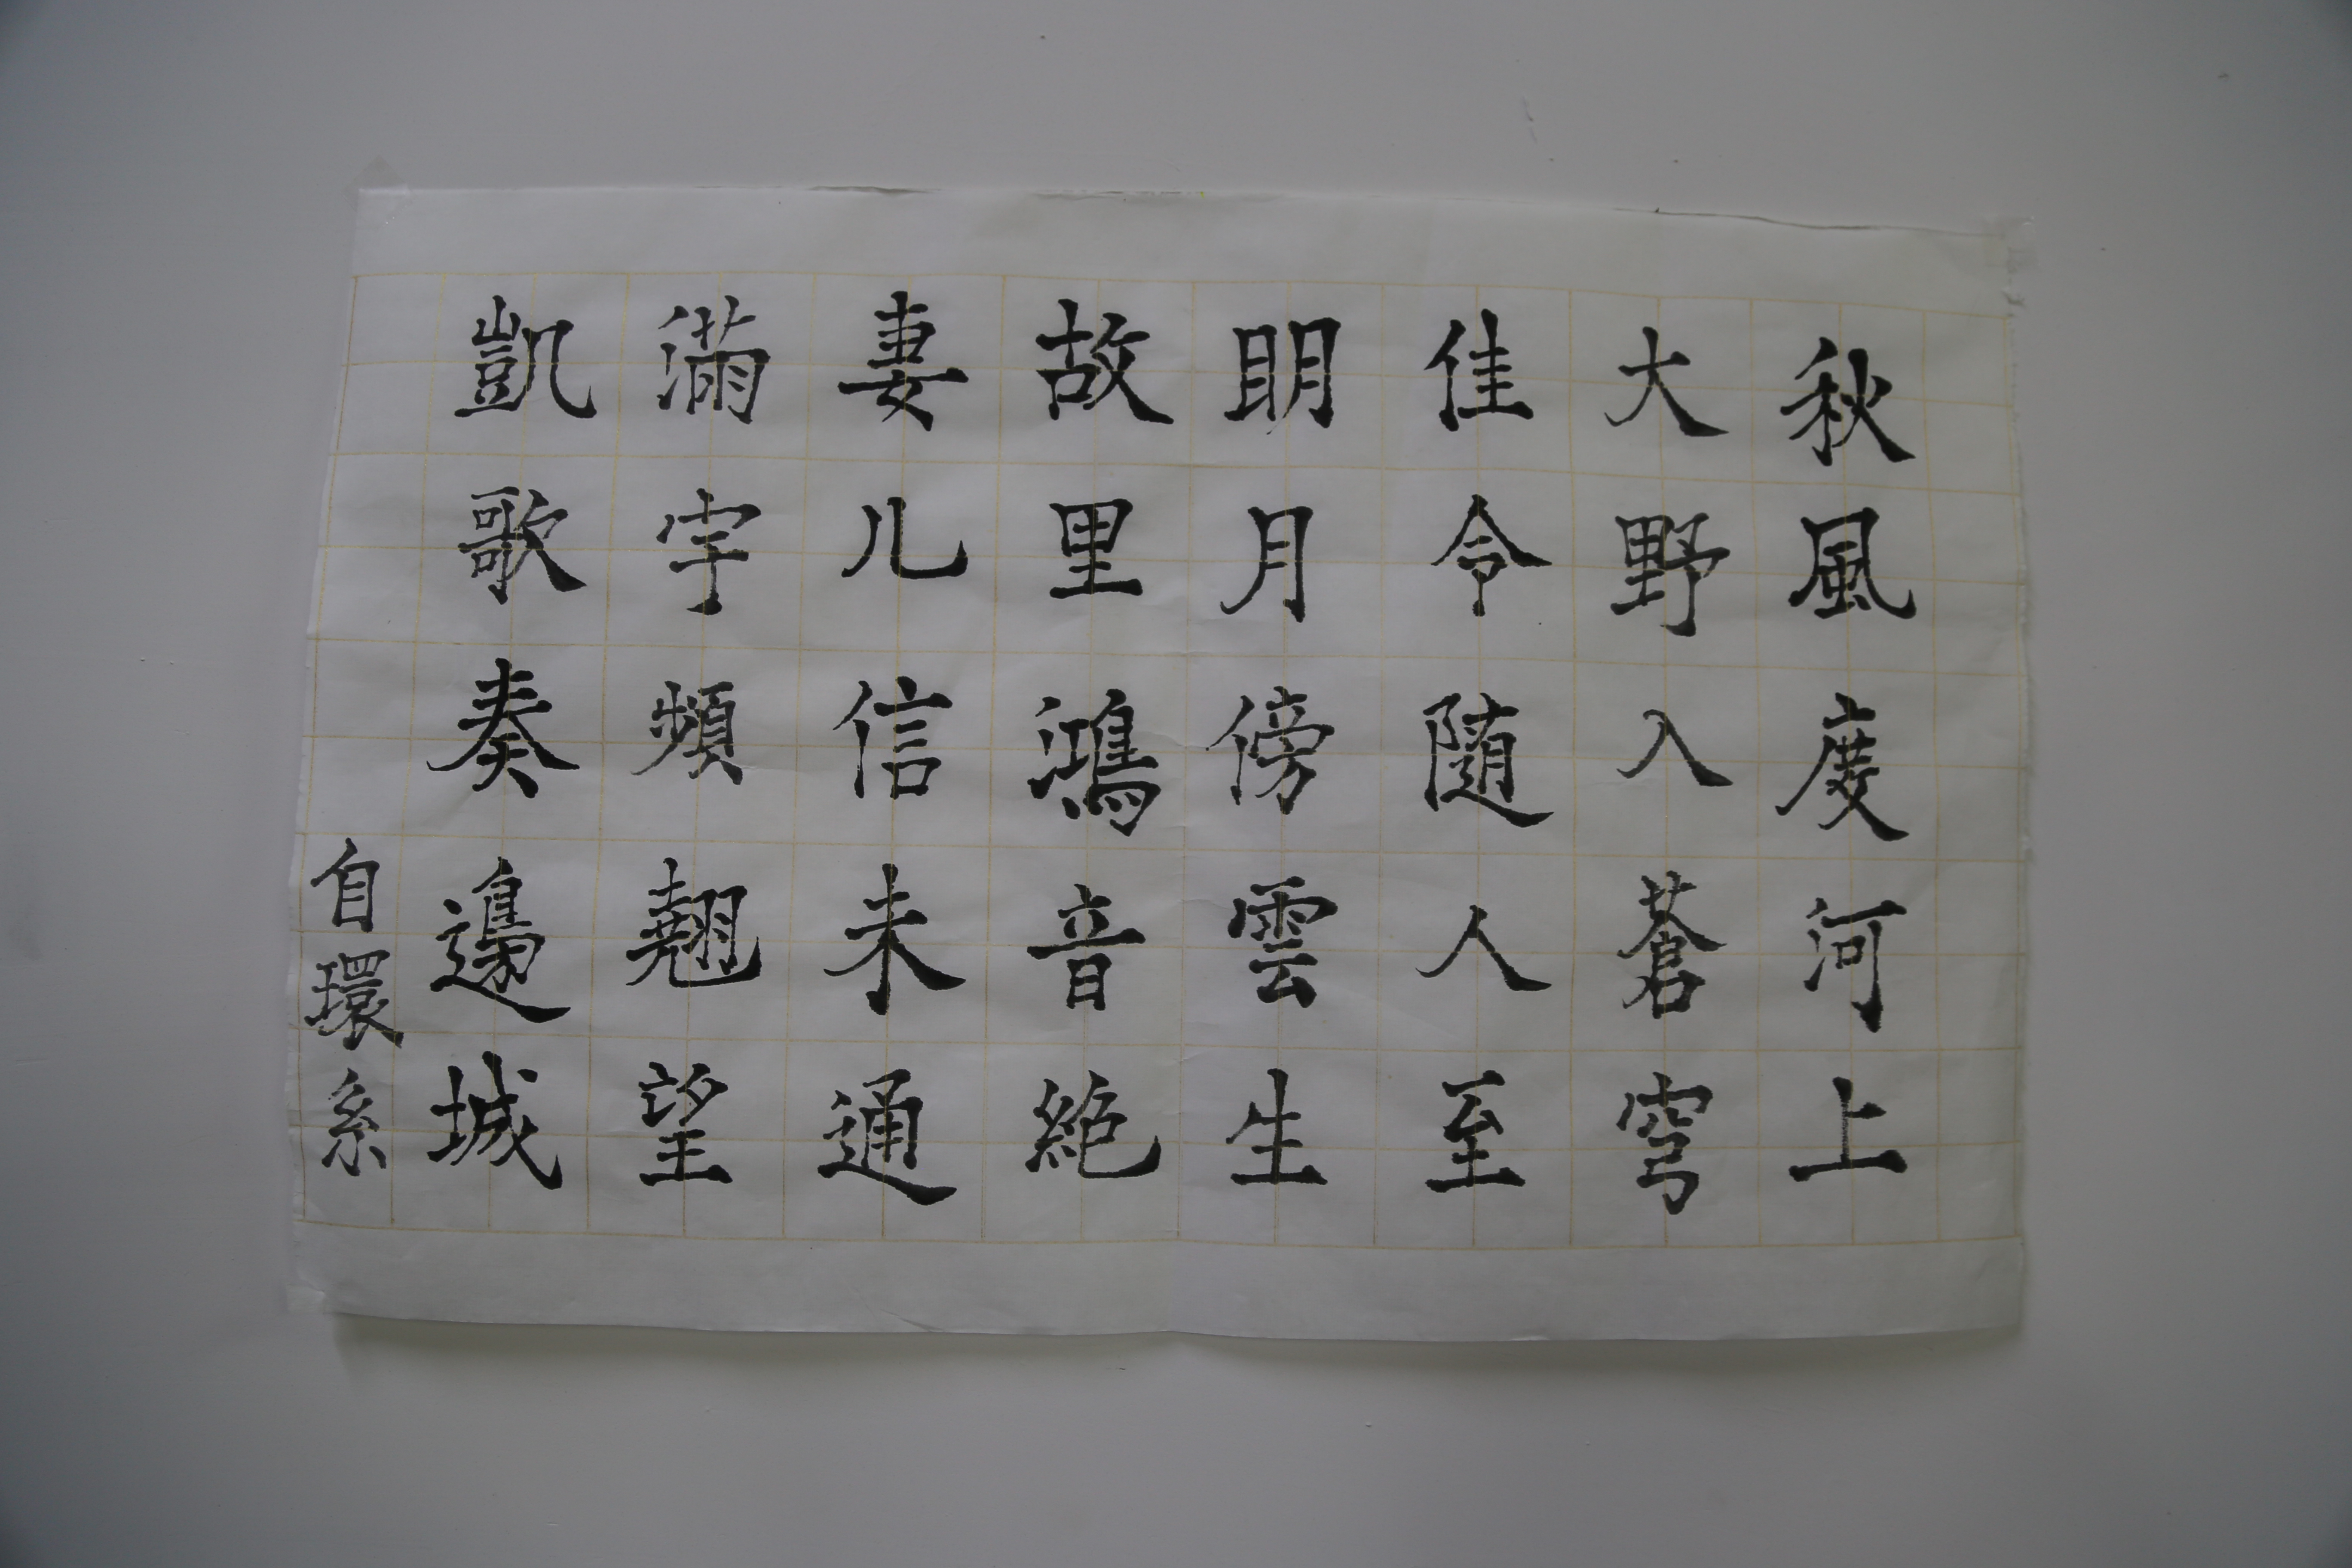 秋風度河上
大野入蒼穹
佳令随人至
明月傍雲生
故里鴻音絶
妻儿信未通
滿宇頻翹望
凱歌奏邊城
自環系